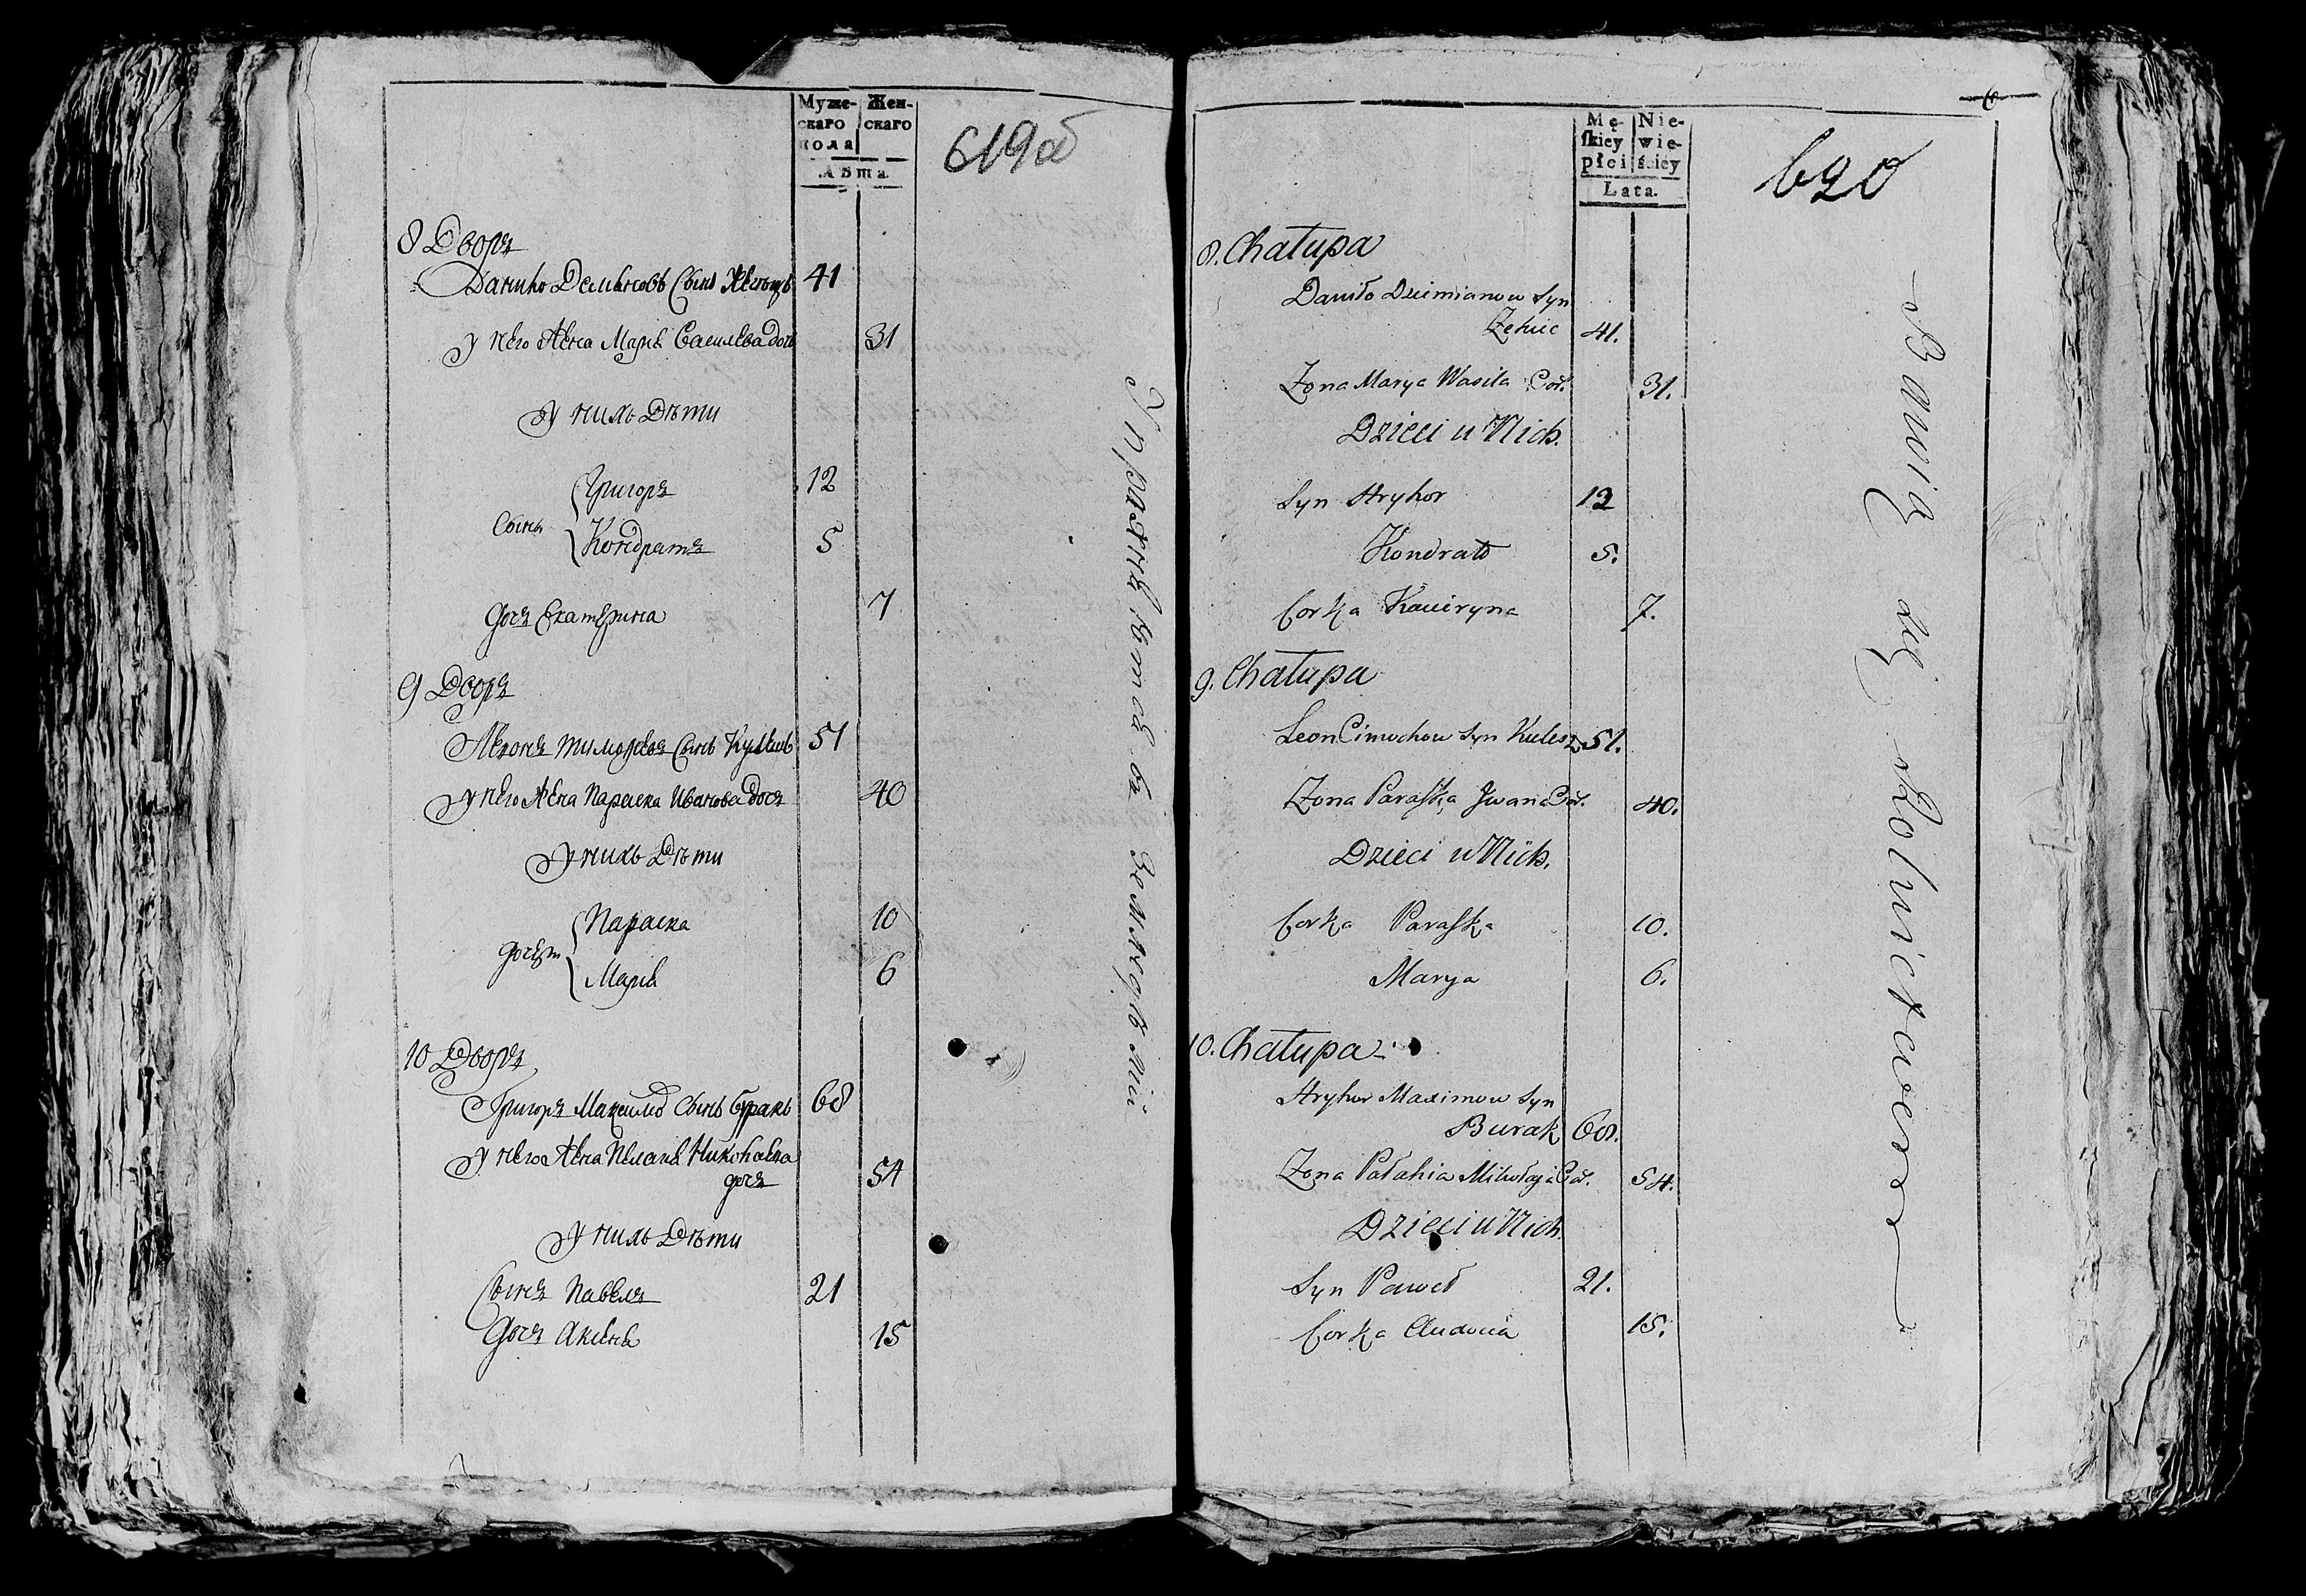 Муже-
скаго
пола
Жен-
скаго
Лѣта.
619об
8 Дворъ
Данило Демьяновъ Сынъ 41
У него Жена Марья Васильева дочь 31
У нихъ Дѣти
Сыны
Григоръ 12
Кондратъ 5
дочь Екатерина 7
9 Дворъ
Леонъ Тимоховъ Сынъ Кулешъ 51
У него Жена Параска Иванова дочь 40
У нихъ Дѣти
Параска 10
Марья 6
10 Дворъ
Григоръ Сынъ Буракъ 68
У него Жена Пелагея Николаева
дочь 54
У нихъ Дѣти
Сынъ Павелъ 21
дочь 15
Упражняются въ Земледѣліи
Mę-
skiey
płci
Nie-
wie-
ściey
Lata.
6
620
8. Chałupa
Daniło Dzimianow Syn
41.
Zona Marya Wasila Cor. 31.
Dzieci u Nich.
Syn Hryhor 12
Kondrat 5.
Corka Kaciryna 7.
9. Chałupa
Leon Cimochow Syn Kulesz 51.
Zona Paraska Jwana Cor. 40.
Dzieci u Nich.
Corka Paraska 10.
Marya 6.
10. Chałupa
Hryhor Maximow Syn
Burak 68.
Zona Pałahia Mikołaja Cor. 54.
Dzieci u Nich
Syn Paweł 21.
Corka Audocia 15.
Bawią się Rolnictwem